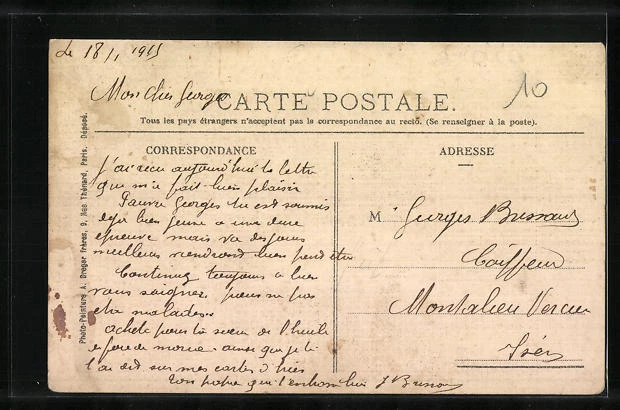 Le 18/1, 1915
10
Mon cher Georges
CARTE POSTALE.
Tous les pays étrangers n'acceptent pas la correspondance au recto. (Se renseigner à la poste).
CORRESPONDANCE
ADRESSE
j'ai reçu aujourd'hui ta lettre
que m'a fait bien plaisir
Pauvre Georges tu est soumis
deja bien jeune a une dure
epreuve mais va des jours
meilleurs viendront bien peut etre
Continuez toujours a bien
vous soigner pour ne pas
etre malades.
achete pour ta soeur de l'huile
de foie de morue ainsi que je te
l'ai dit sur mes cartes d'hier
Ton que t'embrasse
M Georges
Coiffeur
Montalieu Vercieu
Isère
Photo-Peinture A. Dreger frères, 9, Rue Thénard, Paris. Déposé.